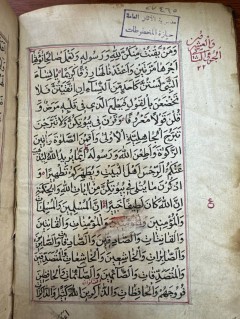 مديرية الآثار العامة
حيازة المخطوطات
ومن يقنت منكن لله ورسوله وتعمل صالحا نؤتها
أجرها مرتين وأعتدنا لها رزقا كريما يا نساء
النبي لستن كأحد من النساء إن اتقيتن فلا
تخضعن بالقول فيطمع الذي في قلبه مرض و
قلن قولا معروفا وقرن في بيوتكن ولا تبرجن
تبرج الجاهلية الأولى وأقمن الصلوة وآتين
الزكوة وأطعن الله ورسوله إنما يريد الله ليذهب
عنكم الرجس أهل البيت ويطهركم تطهيرا و
اذكرن ما يتلى في بيوتكن من آيات الله والحكمة
إن الله كان لطيفا خبيرا إن المسلمين والمسلمات
والمؤمنين والمؤمنات والقانتين
والقانتات والصادقين والصادقات والصابرين
والصابرات والخاشعين والخاشعات والمتصدقين
والمتصدقات والصائمين والصائمات والحافظين
فروجهم والحافظات والذاكرين الله كثيرا والذاكرات
ع